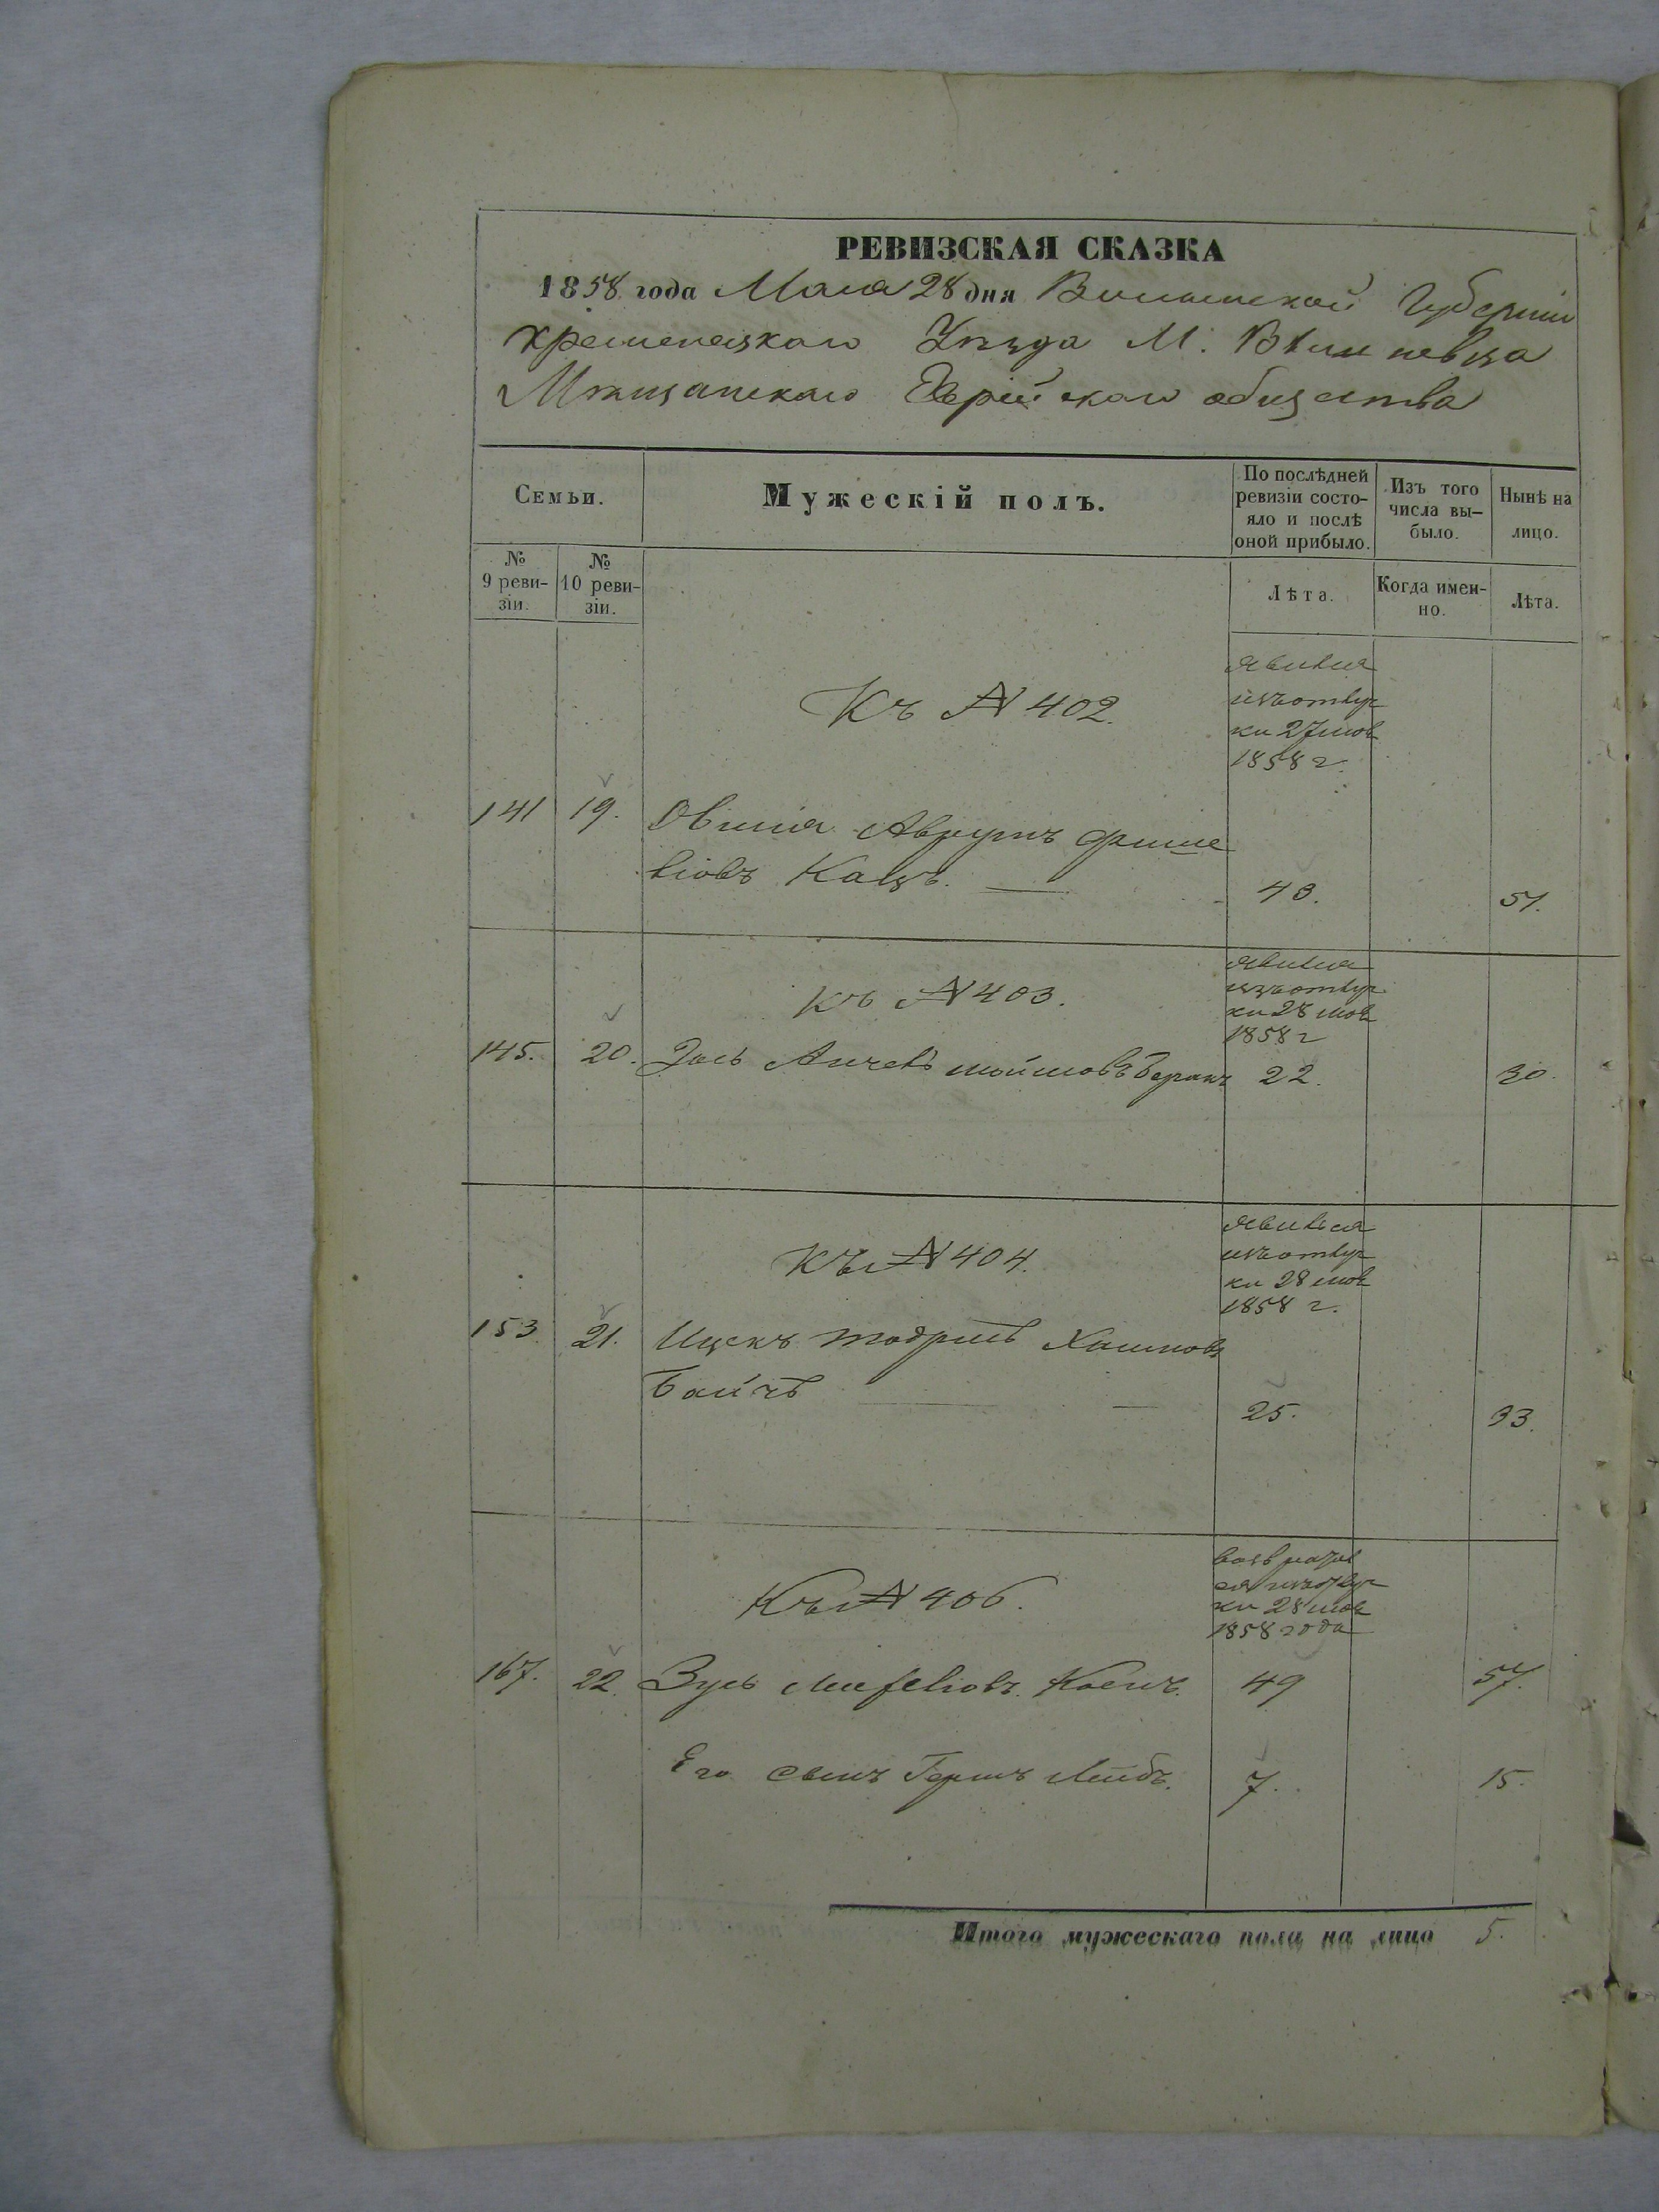 РЕВИЗСКАЯ СКАЗКА
1858 года Мая 28 дня Волынской Губерніи
Кременецкаго Уѣзда М. Вишневца
Мѣщанскаго Еврейскаго общества
Семьи.
Мужескій полъ.
По послѣдней ревизіи состояло и послѣ оной прибыло.
Изъ того числа выбыло.
Нынѣ на лицо.
№ 9 ревизіи.
№ 10 ревизіи.
Лѣта.
Когда именно.
Лѣта.
Къ № 402.
явился
изъ отлуч
ки 27 мая
1858 г.
141 19. Овшія Аврумъ Фише
ліовъ Кацъ. 43. 51.
Къ № 403.
явился
изъ отлуч
ки 28 мая
1858 г
145. 20. 22. 30.
Къ № 404.
явился
изъ отлуч
ки 28 мая
1858 г.
153 21. Ицекъ Тодрисъ Хаимовъ
25. 33.
Къ № 406.
возвратил
ся изъ отлуч
ки 28 мая
1858 года
167. 22. Зусь 49 57.
Его сынъ Гершъ Лейбъ. 7. 15.
Итого мужескаго пола на лицо 5.